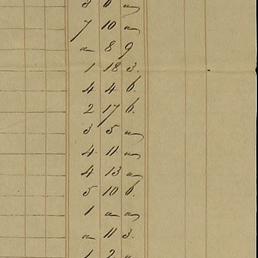 3 6 "
7 10 "
" 8 9
1 18 3.
4 4 6.
2 17 6.
3 5 "
4 11 "
4 13 "
5 10 6.
1 " "
" 11 3.
1 2 "